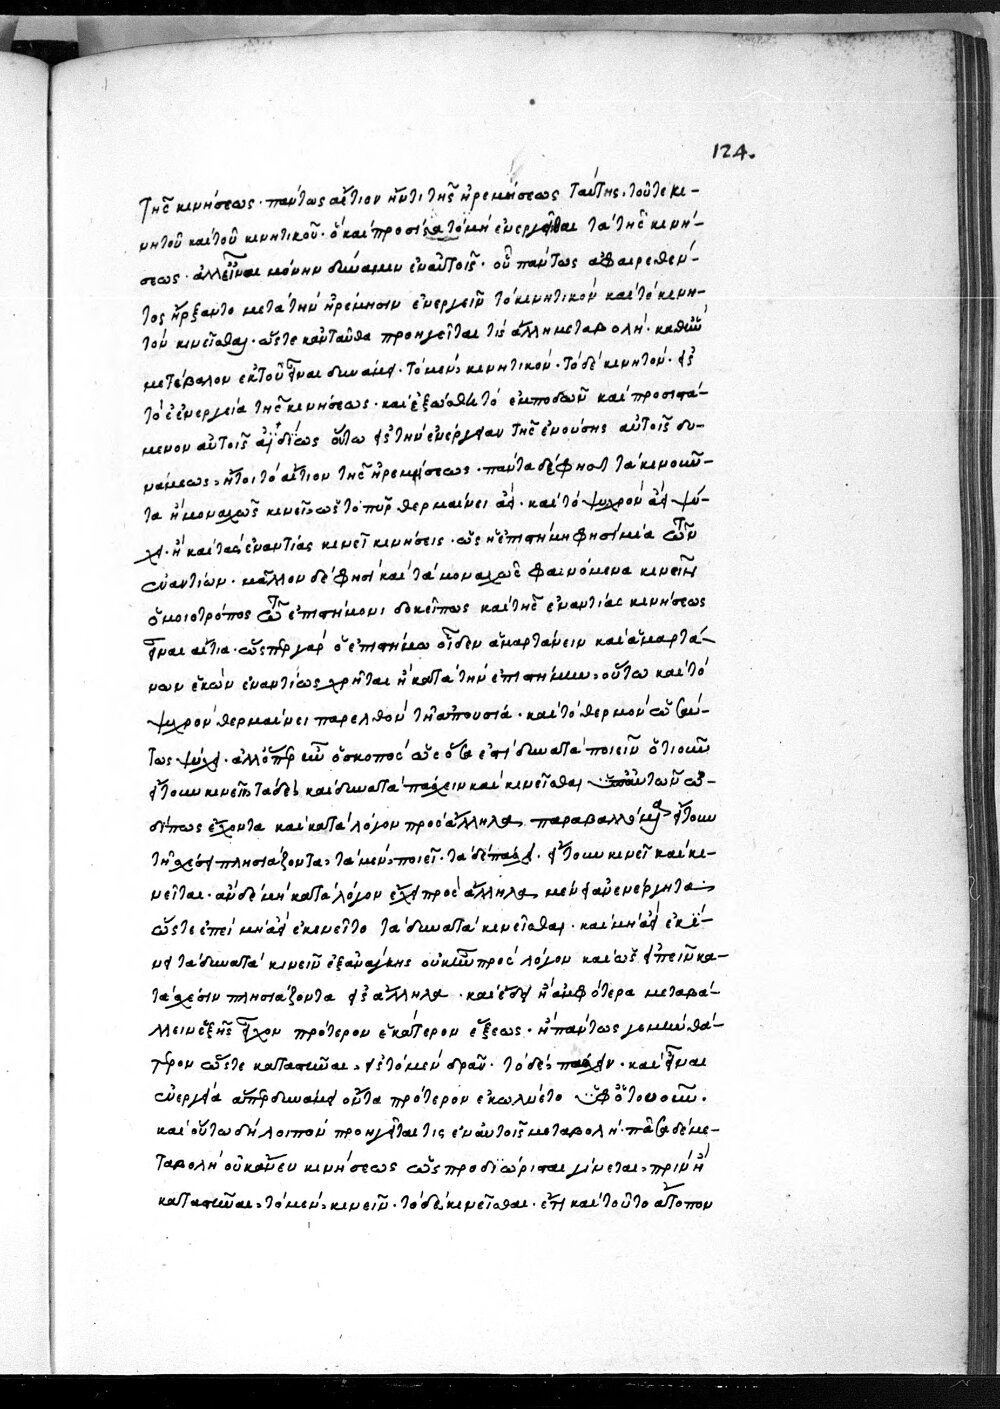 124.
τῆς κινήσεως· πάντως αἴτιον ἦν τι τῆς ἠρεμήσεως ταύτης, τοῦ τε κι-
νητοῦ καὶ τοῦ κινητικοῦ· ὃ καὶ προσίστατο μὴ ἐνεργεῖσθαι τὰ τῆς κινή-
σεως· ἀλλ' εἶναι μόνην δύναμιν ἐν αὐτοῖς· οὗ πάντως ἀφαιρεθέν-
τος ἤρξαντο μετὰ τὴν ἠρέμησιν ἐνεργεῖν τὸ κινητικὸν καὶ τὸ κινη-
τὸν κινεῖσθαι· ὥστε κἀνταῦθα προηγεῖται τις ἄλλη μεταβολή· καθ' ἣν
μετέβαλον ἐκ τοῦ εἶναι δυνάμει· τὸ μὲν κινητικόν· τὸ δὲ κινητόν· εἰς
τὸ ἐνεργείᾳ τῆς κινήσεως· καὶ ἐξώσθη τὸ ἐμποδὼν καὶ προσιστά-
μενον αὐτοῖς ἀϊδίως οὕτω εἰς τὴν ἐνέργειαν τῆς ἐνούσης αὐτοῖς δυ-
νάμεως, ἤτοι τὸ αἴτιον τῆς ἠρεμήσεως· πάντα δέ φησι τὰ κινοῦν-
τα ἢ μοναχῶς κινεῖ, ὡς τὸ πῦρ θερμαίνει ἀεί· καὶ τὸ ψυχρὸν ἀεὶ ψύ-
χει· ἢ καὶ τὰς ἐναντίας κινεῖ κινήσεις· ὡς ἡ ἐπιστήμη φησὶ μία τῶν
ἐναντίων· μᾶλλον δέ φησι καὶ τὰ μοναχῶς φαινόμενα κινεῖν
ὁμοιοτρόπως τῷ ἐπιστήμονι δοκεῖ πως καὶ τῆς ἐναντίας κινήσεως
εἶναι αἴτια· ὥσπερ γὰρ ὁ ἐπιστήμων οἶδεν ἁμαρτάνειν καὶ ἁμαρτά-
νων ἑκὼν ἐναντίως χρῆται ἢ κατὰ τὴν ἐπιστήμην, οὕτω καὶ τὸ
ψυχρὸν θερμαίνει παρελθὸν τῇ ἀπουσίᾳ· καὶ τὸ θερμὸν ὡσαύ-
τως ψύχει· ἀλλ' ὅπερ ἦν ὁ σκοπὸς ὡς ὅσα ἐστὶ δυνατὰ ποιεῖν ὁτιοῦν
εἴτουν κινεῖν τάδε καὶ δυνατὰ πάσχειν καὶ κινεῖσθαι ὑπ' αὐτῶν ὡ-
δί πως ἔχοντα καὶ κατὰ λόγον πρὸς ἄλληλα παραβαλλόμενα εἴτουν
τῇ σχέσει πλησιάζοντα, τὰ μὲν ποιεῖ· τὰ δὲ πάσχει· εἴτουν κινεῖ καὶ κι-
νεῖται· ἂν δὲ μὴ κατὰ λόγον ἔχῃ πρὸς ἄλληλα μένει ἀνενέργητα
ὥστε ἐπεὶ μὴ ἀεὶ ἐκινεῖτο τὰ δυνατὰ κινεῖσθαι· καὶ μὴ ἀεὶ ἐκί-
νει τὰ δυνατὰ κινεῖν ἐξ ἀνάγκης οὐκ ἦν πρὸς λόγον καὶ ὡς εἰπεῖν κα-
τὰ σχέσιν πλησιάζοντα εἰς ἄλληλα· καὶ ἔδει ἢ ἀμφότερα μεταβά-
λλειν ἐξ ἧς εἶχον πρότερον ἑκάτερον ἕξεως· ἢ πάντως γοῦν θά-
τερον ὥστε καταστῆναι εἰς τὸ μὲν δρᾶν· τὸ δὲ πάσχειν· καὶ εἶναι
ἐνεργείᾳ ἅπερ δυνάμει ὄντα πρότερον ἐκωλύετο ὑφ' ὁτουοῦν·
καὶ οὕτω δὴ λοιπὸν προηγεῖται τις ἐν αὐτοῖς μεταβολή· πᾶσα δὲ με-
ταβολὴ οὐκ ἄνευ κινήσεως ὡς προδιώρισται γίνεται· πρὶν ἢ
καταστῆναι, τὸ μὲν, κινεῖν· τὸ δὲ κινεῖσθαι· ἔτι καὶ τοῦτο ἄτοπον